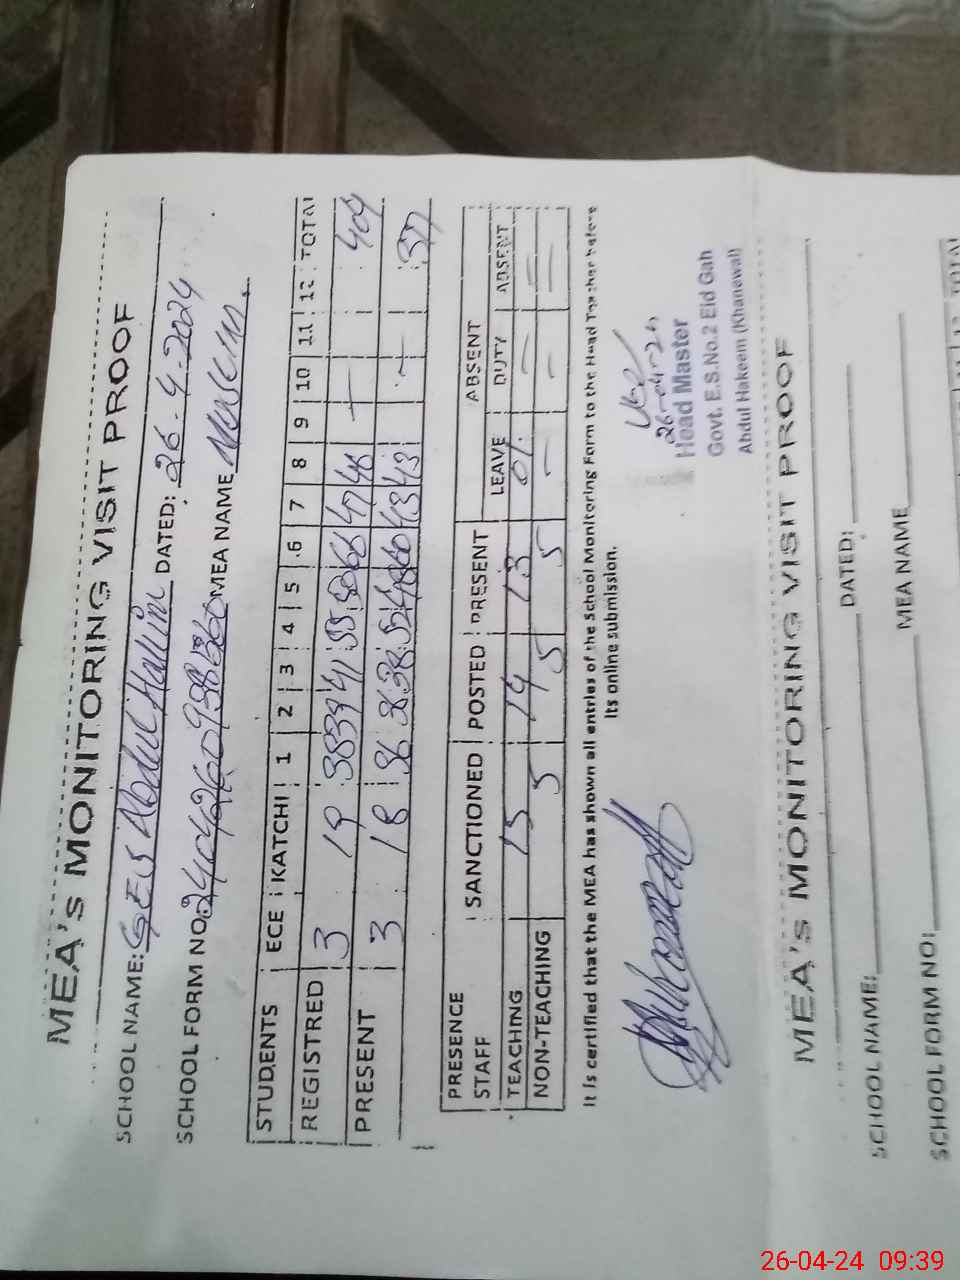 MEA's MONITORING VISIT PROOF
SCHOOL NAME: GES Abdul Hakim DATED: 26-4-2024
SCHOOL FORM NO: MEA NAME
STUDENTS ECE KATCHI 1 2 3 4 5 6 7 8 9 10 11 12 TOTAL
REGISTRED 3 19 38 39 41 55 50 66 47 46 — 404
PRESENT 3 18 36 36 38 52 48 60 43 43 — 377
PRESENCE ABSENT
STAFF SANCTIONED POSTED PRESENT LEAVE DUTY ABSENT
TEACHING 15 14 13 01 — —
NON-TEACHING 5 5 5 — — —
It Is certified that the MEA has shown all entries of the School Monitoring Form to the Head Teacher before
Its online submission.
26-04-24
Head Master
Govt. E.S.No.2 Eid Gah
Abdul Hakeem (Khanewal)
MEA's MONITORING VISIT PROOF
SCHOOL NAME: DATED:
SCHOOL FORM NO: MEA NAME
12 TOTAL
26-04-24 09:39